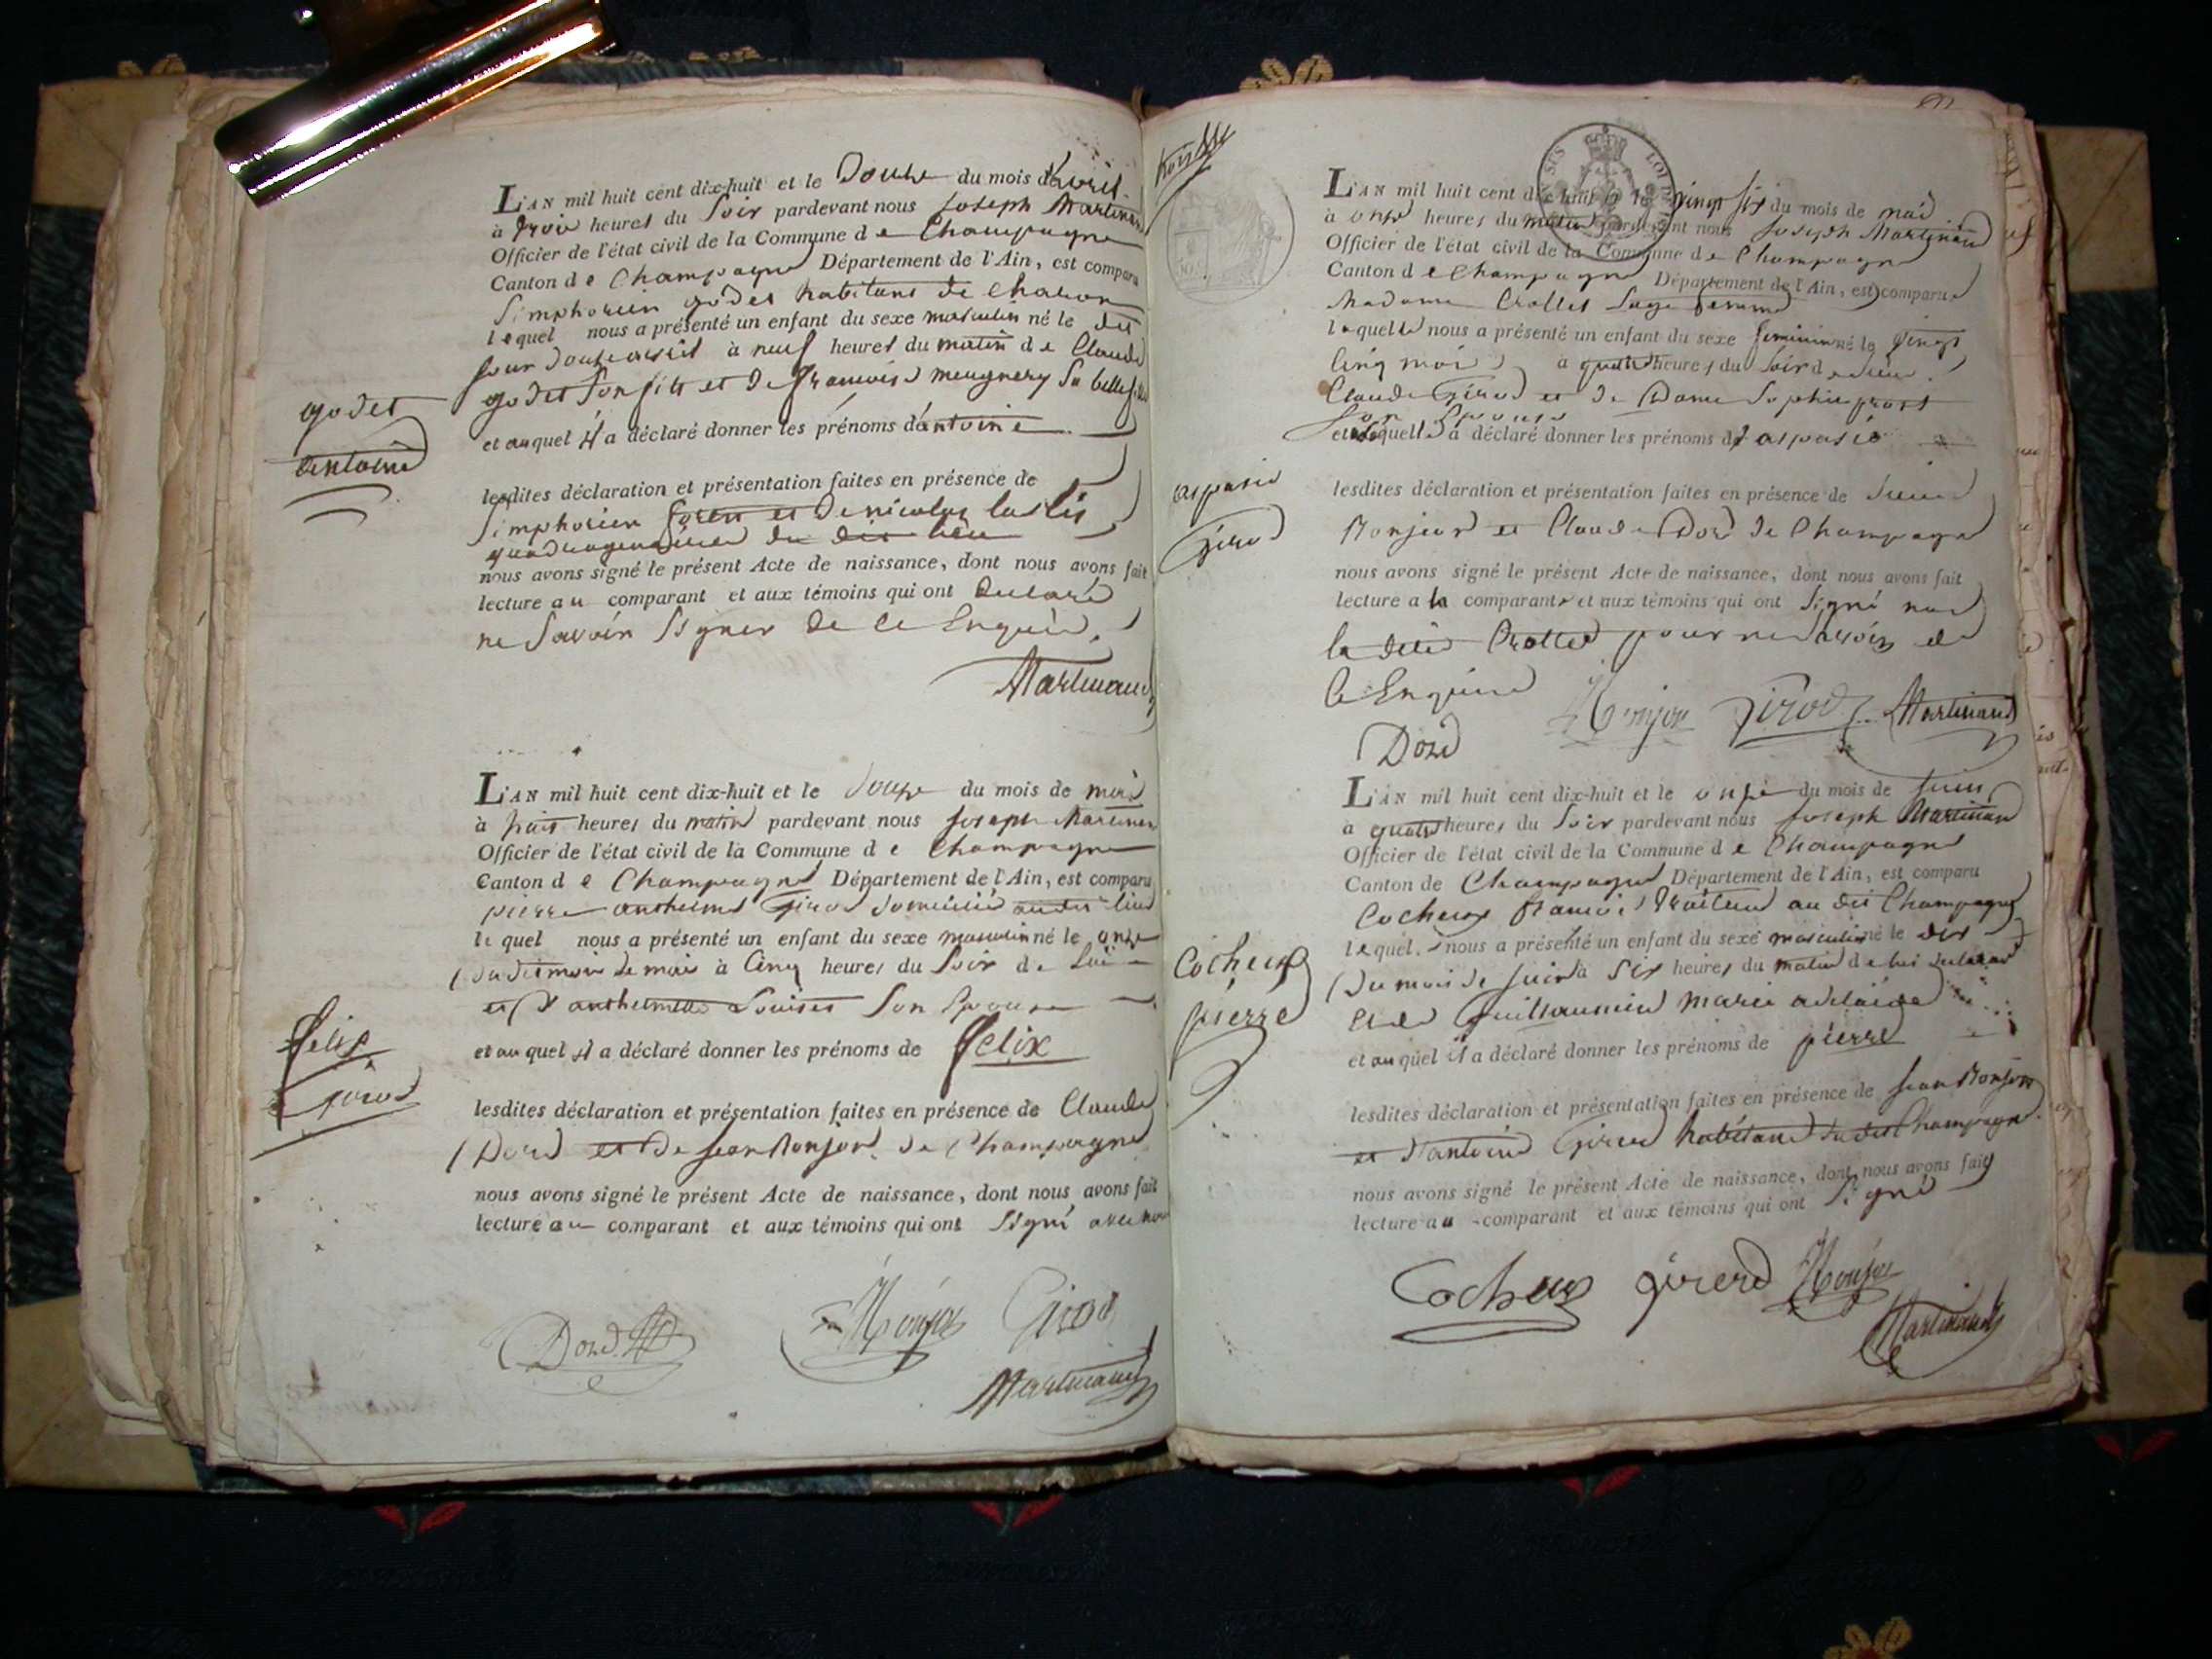 L'AN mil huit cent dix-huit et le Douze du mois d'avril
à trois heures du Soir pardevant nous Joseph Martinand
Officier de l'état civil de la Commune de Champagne
Canton de Champagne Département de l'Ain, est comparu
Simphorien godet habitant de
lequel nous a présenté un enfant du sexe masculin né le dit
jour douze avril à neuf heures du matin de Claude
godet son fils et de françoise meugnery sa belle fille
et auquel il a déclaré donner les prénoms d'antoine
godet
antoine
lesdites déclaration et présentation faites en présence de
Simphorien et de nicolas
quadragenaires du dit lieu
nous avons signé le présent Acte de naissance, dont nous avons fait
lecture au comparant et aux témoins qui ont declaré
ne savoir signer de ce Enquis.
Martinand
L'AN mil huit cent dix-huit et le Douze du mois de mai
à huit heures du matin pardevant nous Joseph Martinand
Officier de l'état civil de la Commune de Champagne
Canton de Champagne Département de l'Ain, est comparu
pierre anthelme Girod domicilié au dit lieu
lequel nous a présenté un enfant du sexe masculin né le onze
du dit mois de mai à Cinq heures du Soir de Lui
et d'anthelmette Louise Son Epouse
et auquel il a déclaré donner les prénoms de Felix
felix
girod
lesdites déclaration et présentation faites en présence de Claude
Dord et de jean Monjou de Champagne
nous avons signé le présent Acte de naissance, dont nous avons fait
lecture au comparant et aux témoins qui ont signé avec nous
Dord Monjou Girod
Martinand
L'AN mil huit cent dix-huit et le vingt six du mois de mai
à onze heures du matin pardevant nous Joseph Martinand
Officier de l'état civil de la Commune de Champagne
Canton de Champagne Département de l'Ain, est comparue
Madame Crollet Sage femme
laquelle nous a présenté un enfant du sexe feminin né le vingt
cinq mai à quatre heures du Soir de sieur
Claude Girod et de Dame Sophie prost
Son Epouse
et à laquelle a déclaré donner les prénoms d'aspasie
aspasie
girod
lesdites déclaration et présentation faites en présence de sieurs
Monjou et Claude Dord de Champagne
nous avons signé le présent Acte de naissance, dont nous avons fait
lecture a la comparante et aux témoins qui ont signé non
la dite Crollet pour ne savoir de
ce Enquise
Monjou Girod Martinand
Dord
L'AN mil huit cent dix-huit et le onze du mois de juin
à quatre heures du Soir pardevant nous Joseph Martinand
Officier de l'état civil de la Commune de Champagne
Canton de Champagne Département de l'Ain, est comparu
Cocheux françois traiteur au dit Champagne
lequel nous a présenté un enfant du sexe masculin né le dix
du mois de juin à six heures du matin de lui
et de Guillaumin marie adelaide
et auquel il a déclaré donner les prénoms de pierre
Cocheux
pierre
lesdites déclaration et présentation faites en présence de jean Monjou
et d'antoine Girerd habitant du dit Champagne
nous avons signé le présent Acte de naissance, dont nous avons fait
lecture au comparant et aux témoins qui ont signé
Cocheux girerd Monjou
Martinand